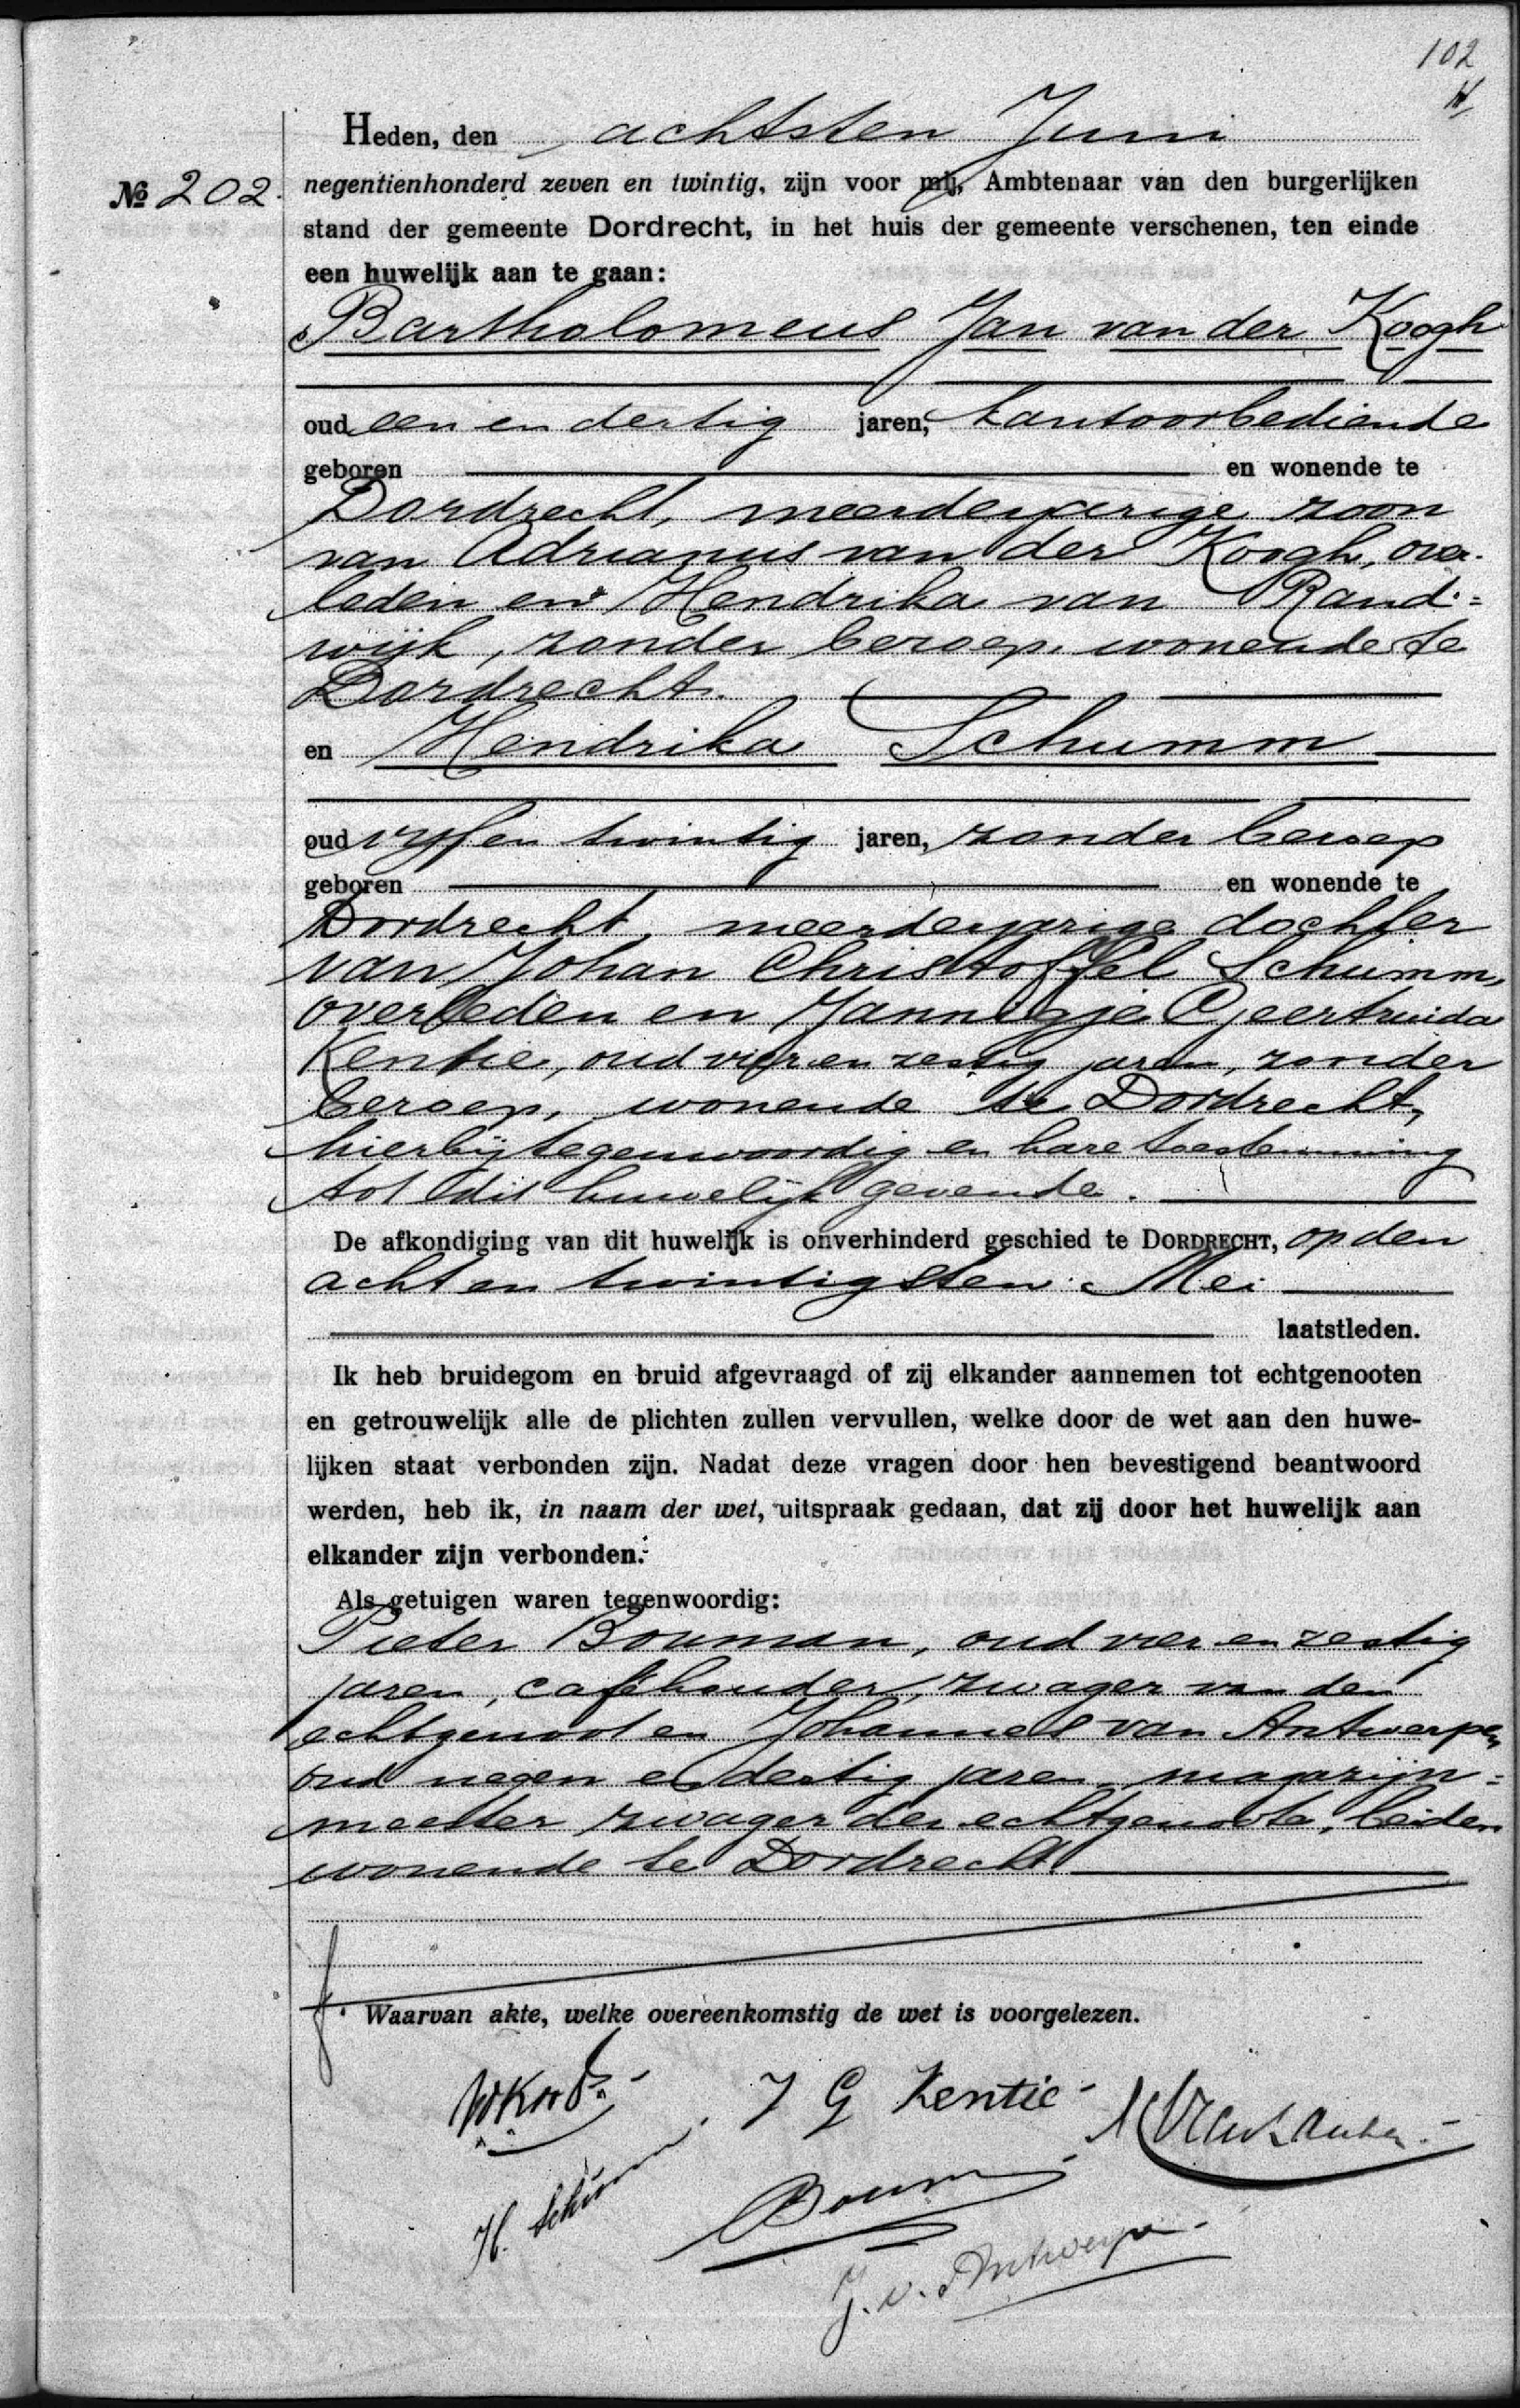 102
Heden, den achtsten Juni
№ 202.
negentienhonderd zeven en twintig, zijn voor mij, Ambtenaar van den burgerlijken
stand der gemeente Dordrecht, in het huis der gemeente verschenen, ten einde
een huwelijk aan te gaan:
Bartholomeus Jan van der Koogh
oud een en dertig jaren, kantoorbediende
geboren en wonende te
Dordrecht, meerderjarige zoon
van Adrianus van der Koogh, over-
leden en Hendrika van Rand=
wijk, zonder beroep, wonende te
Dordrecht.
en Hendrika Schumm
oud vijf en twintig jaren, zonder beroep
geboren en wonende te
Dordrecht, meerderjarige dochter
van Johan Christoffel Schumm,
overleden en Jannigje Geertruida
Kentie, oud vier en zestig jaren, zonder
beroep, wonende te Dordrecht,
hierbij tegenwoordig en hare toestemming
tot dit huwelijk gevende.
De afkondiging van dit huwelijk is onverhinderd geschied te DORDRECHT, op den
acht en twintigsten Mei
laatstleden.
Ik heb bruidegom en bruid afgevraagd of zij elkander aannemen tot echtgenooten
en getrouwelijk alle de plichten zullen vervullen, welke door de wet aan den huwe-
lijken staat verbonden zijn. Nadat deze vragen door hen bevestigend beantwoord
werden, heb ik, in naam der wet, uitspraak gedaan, dat zij door het huwelijk aan
elkander zijn verbonden.
Als getuigen waren tegenwoordig:
Pieter Bouman, oud vier en zestig
jaren, caféhouder, zwager van den
echtgenoot en Johannes van Antwerpen
oud negen en dertig jaren, magazijn=
meester zwager der echtgenoote, beiden
wonende te Dordrecht.
Waarvan akte, welke overeenkomstig de wet is voorgelezen.
J G Kentie
H. Schumm
Bouman
J. v. Antwerpen